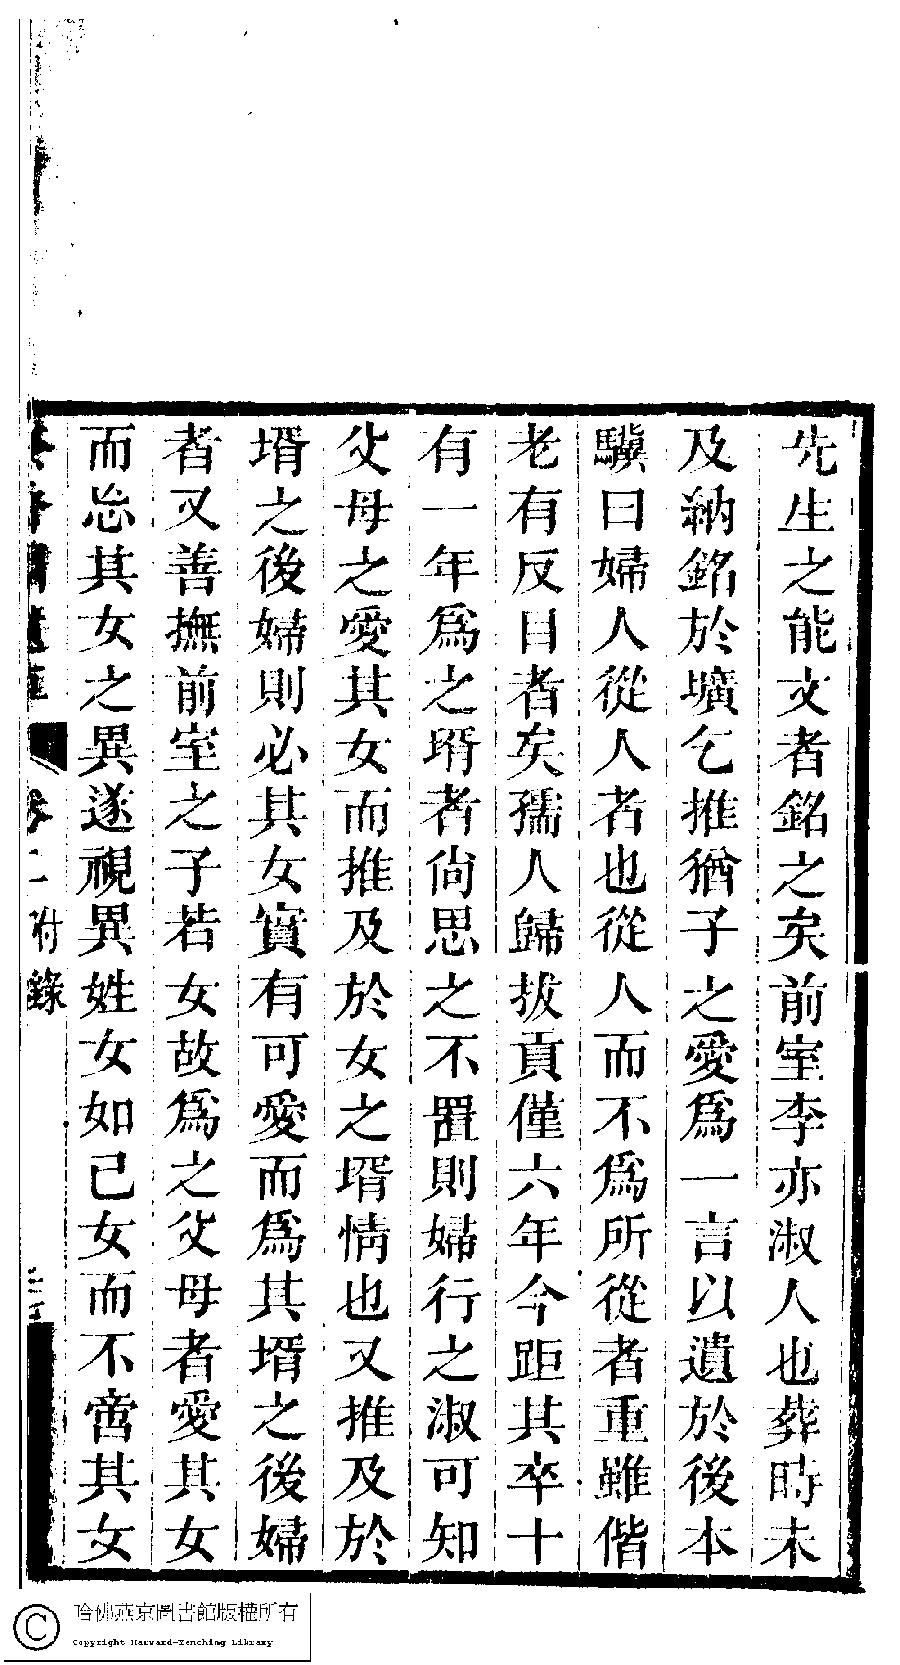 先生之能文者銘之矣前室李亦淑人也葬時未
及納銘於壙乞推猶子之愛爲一言以遺於後本
驥曰婦人從人者也從人而不爲所從者重雖偕
老有反目者矣孺人歸拔貢僅六年今距其卒十
有一年爲之壻者尙思之不置則婦行之淑可知
父母之愛其女而推及於女之壻情也又推及於
壻之後婦則必其女實有可愛而爲其壻之後婦
者又善撫前室之子若女故爲之父母者愛其女
而忘其女之異遂視異姓女如己女而不啻其女
卷二附錄
哈佛燕京圖書館版權所有
Copyright Harvard-Yenching Library